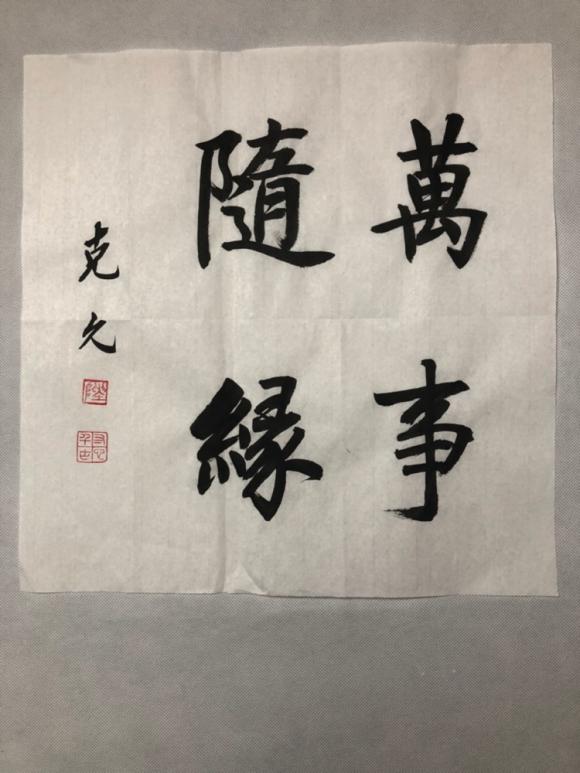 萬事
隨緣
克久
陸